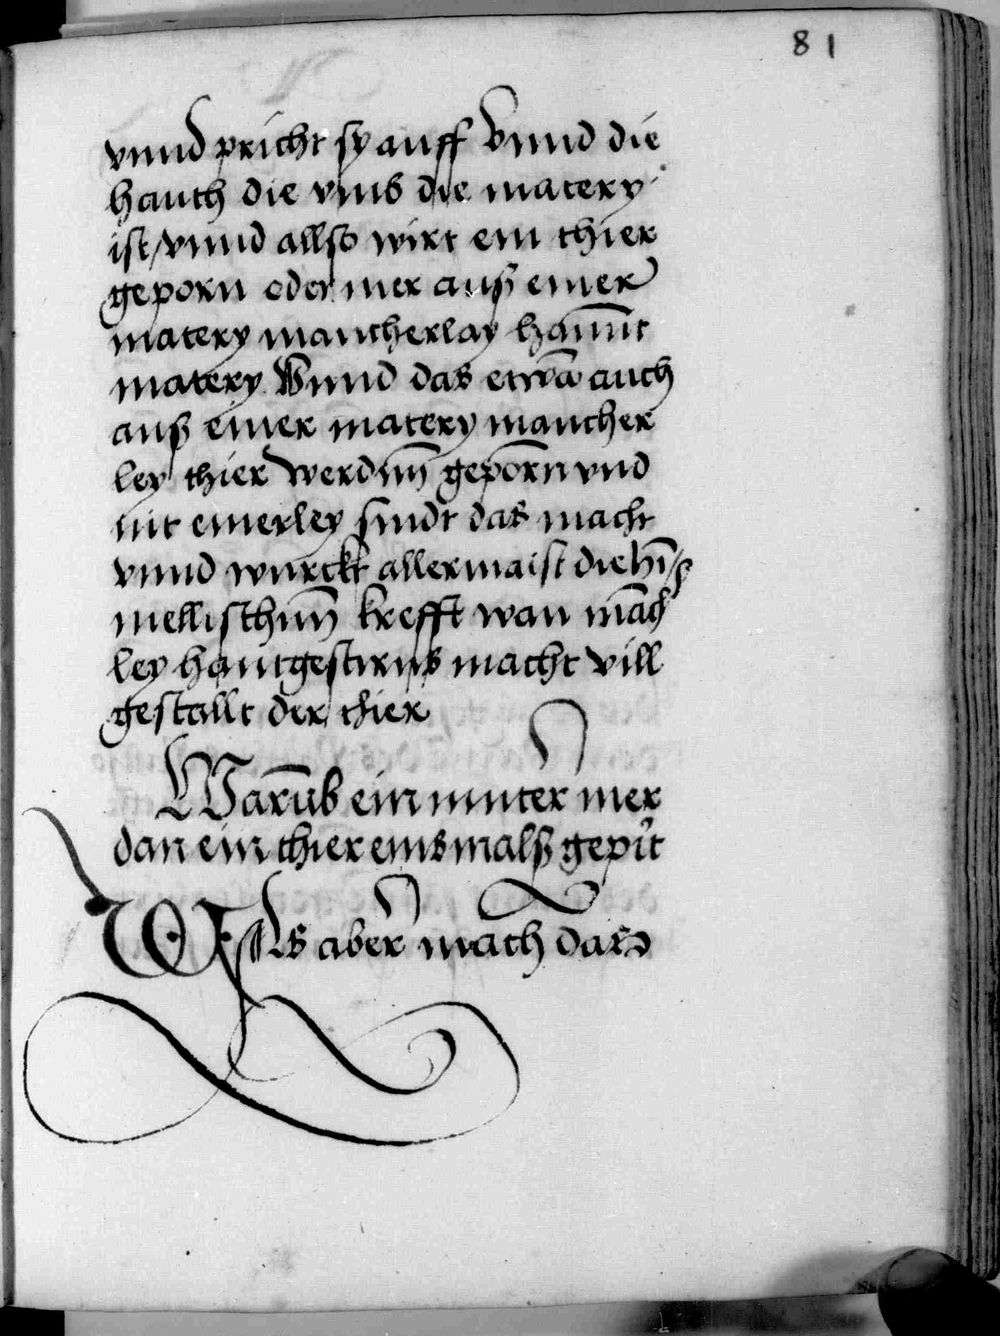 81
vnnd pricht sy auff Vnnd die
hauth die vmb die matery
ist / vnnd allso wirt ein thier
geporn oder mer auß einer
matery mancherlay hannt
matery Vnnd das etwā auch
auß einer matery mancher
ley thier werdnn̄ geporn vnd
nit einerley sindt das macht
vnnd wurckt allermaist die hī /
mellischnn̄ krefft wan māch
ley hantgestirns macht vill
gestallt der thier
Warūb ein mutter mer
dan ein thier einsmalß gepirt
Was aber mach das